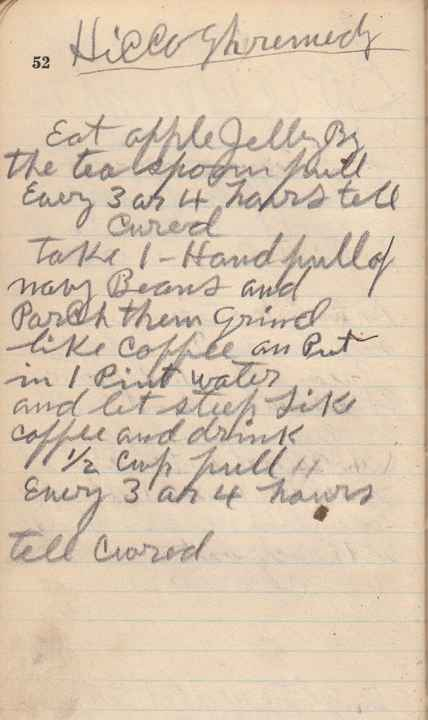 52
Hiccoghremedy
Eat apple Jelly By
the tea spoon full
Every 3 or 4 hours tell
cured
Take 1 - Hand full of
navy Beans and
Parch them Grind
like Coffee an Put
in 1 Pint water
and let steep Like
coffee and drink
1/2 Cup full
Every 3 or 4 hours
tell cured